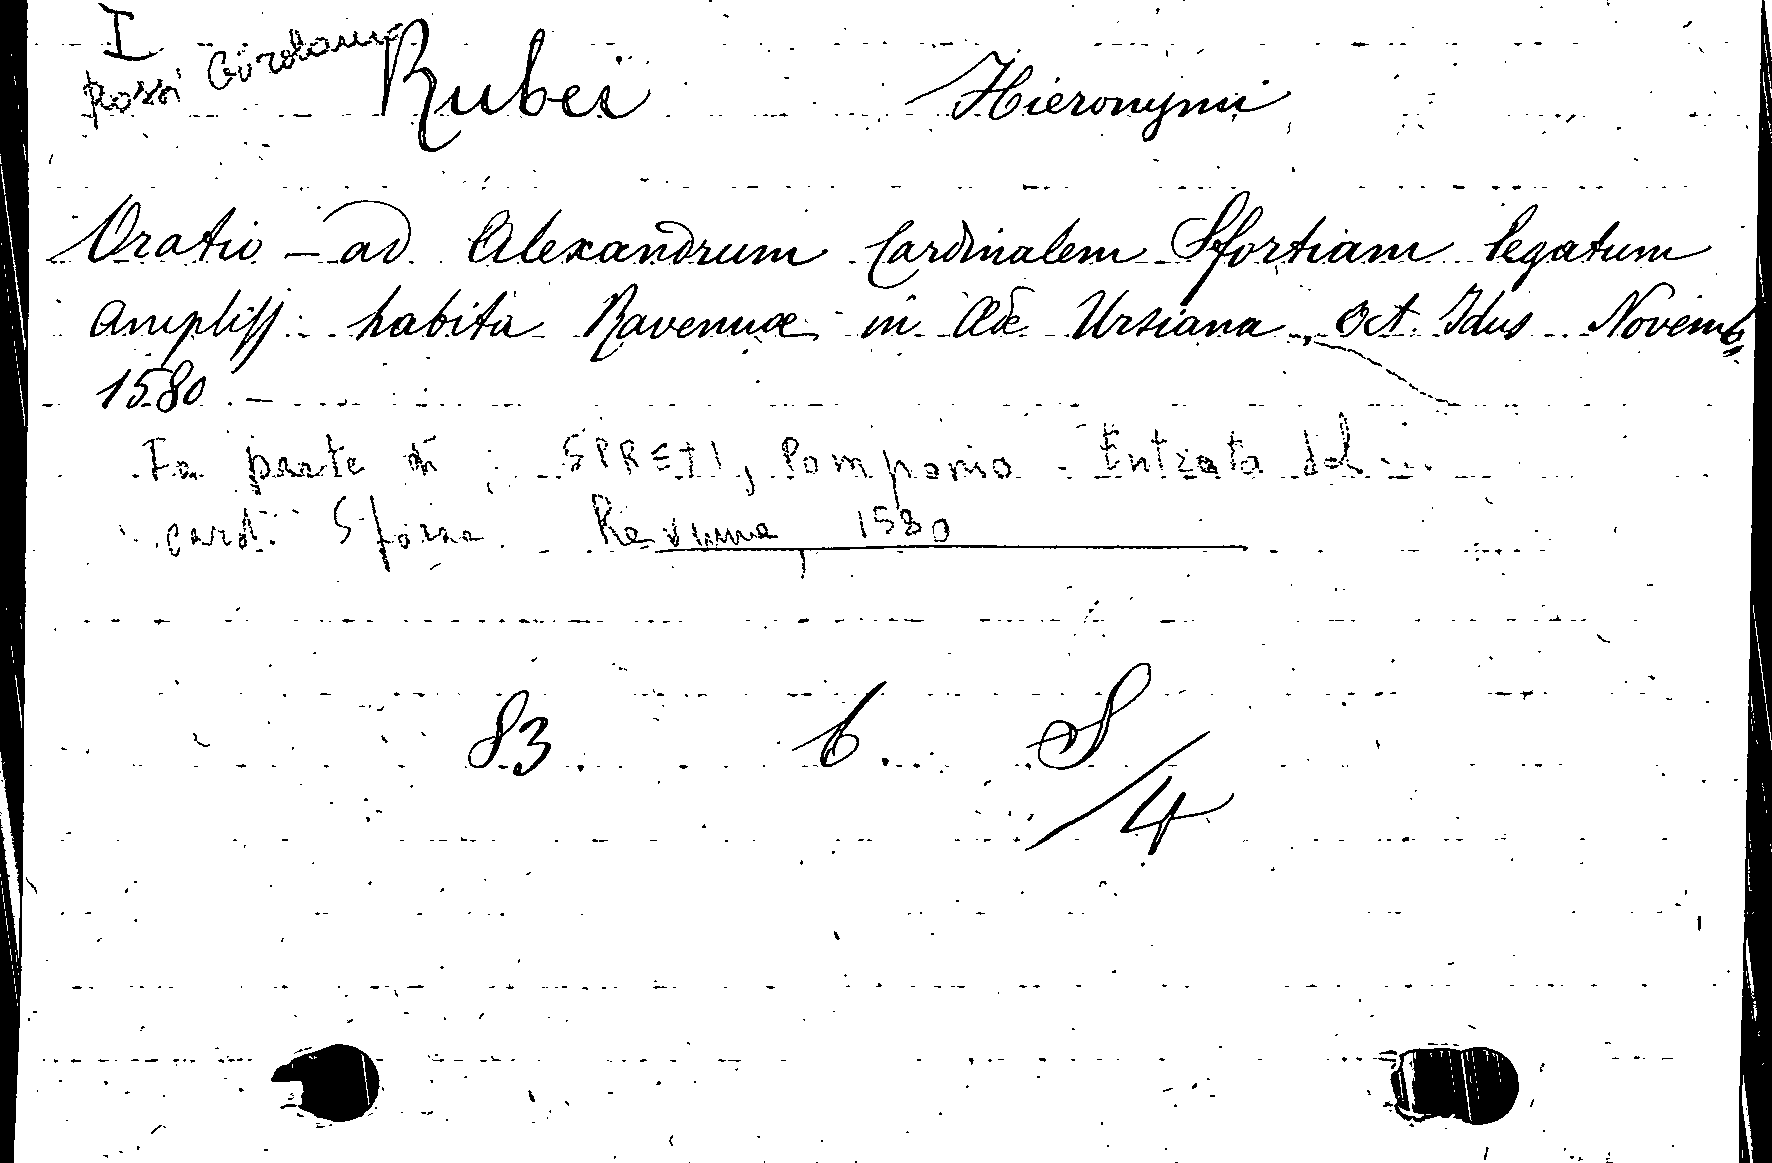 I
Rossi Girolamo
Rubei Hieronymi
Oratio - ad Alexandrum Cardinalem Sfortiam legatum
ampliss. habita Ravennae in Æde Ursiana, Oct. Idus Novemb,
1580 -
Fa parte di: SPRETI, Pomponio - Entrata del
card. Sforza Ravenna, 1580
83 6 S
/4